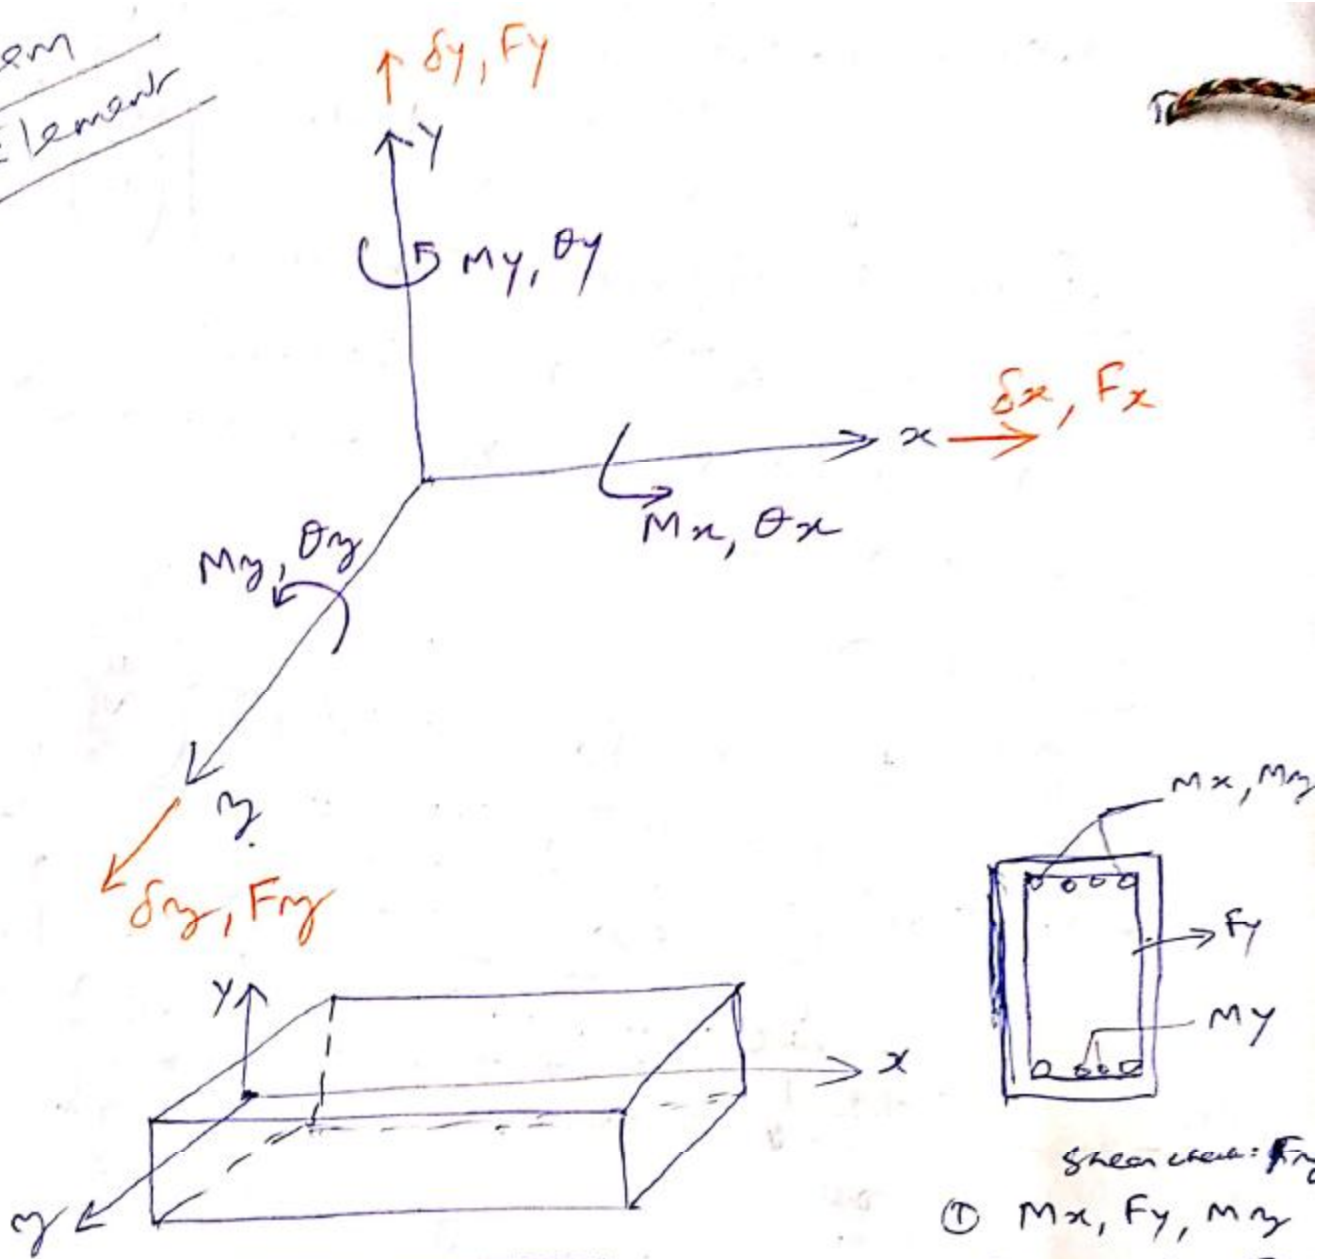 Element
δy, Fy
y
My, θy
δx, Fx
x
Mx, θx
Mz, θz
z
δz, Fz
Mx, Mz
Fy
My
y
x
z
Shear check: Fz
① Mx, Fy, Mz